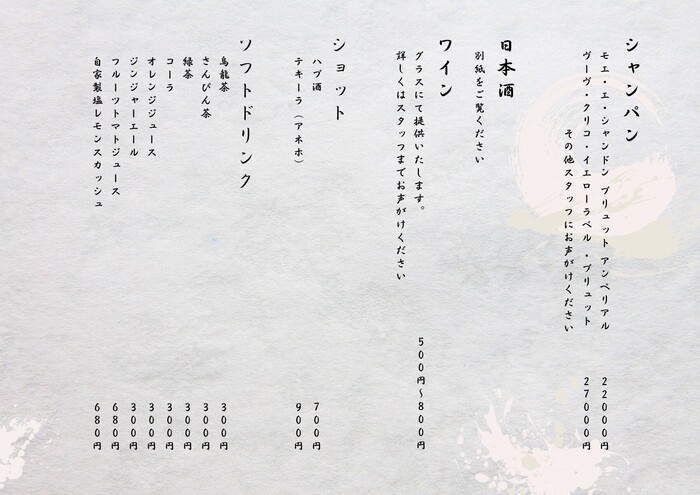 シャンパン
モエ・エ・シャンドン ブリュット アンペリアル 22000円
ヴーヴ・クリコ・イエローラベル・ブリュット 27000円
その他スタッフにお声がけください
日本酒
別紙をご覧ください
ワイン
グラスにて提供いたします。 500円~800円
詳しくはスタッフまでお声がけください
ショット
ハブ酒 700円
テキーラ(アネホ) 900円
ソフトドリンク
烏龍茶 300円
さんぴん茶 300円
緑茶 300円
コーラ 300円
オレンジジュース 300円
ジンジャーエール 300円
フルーツトマトジュース 680円
自家製塩レモンスカッシュ 680円